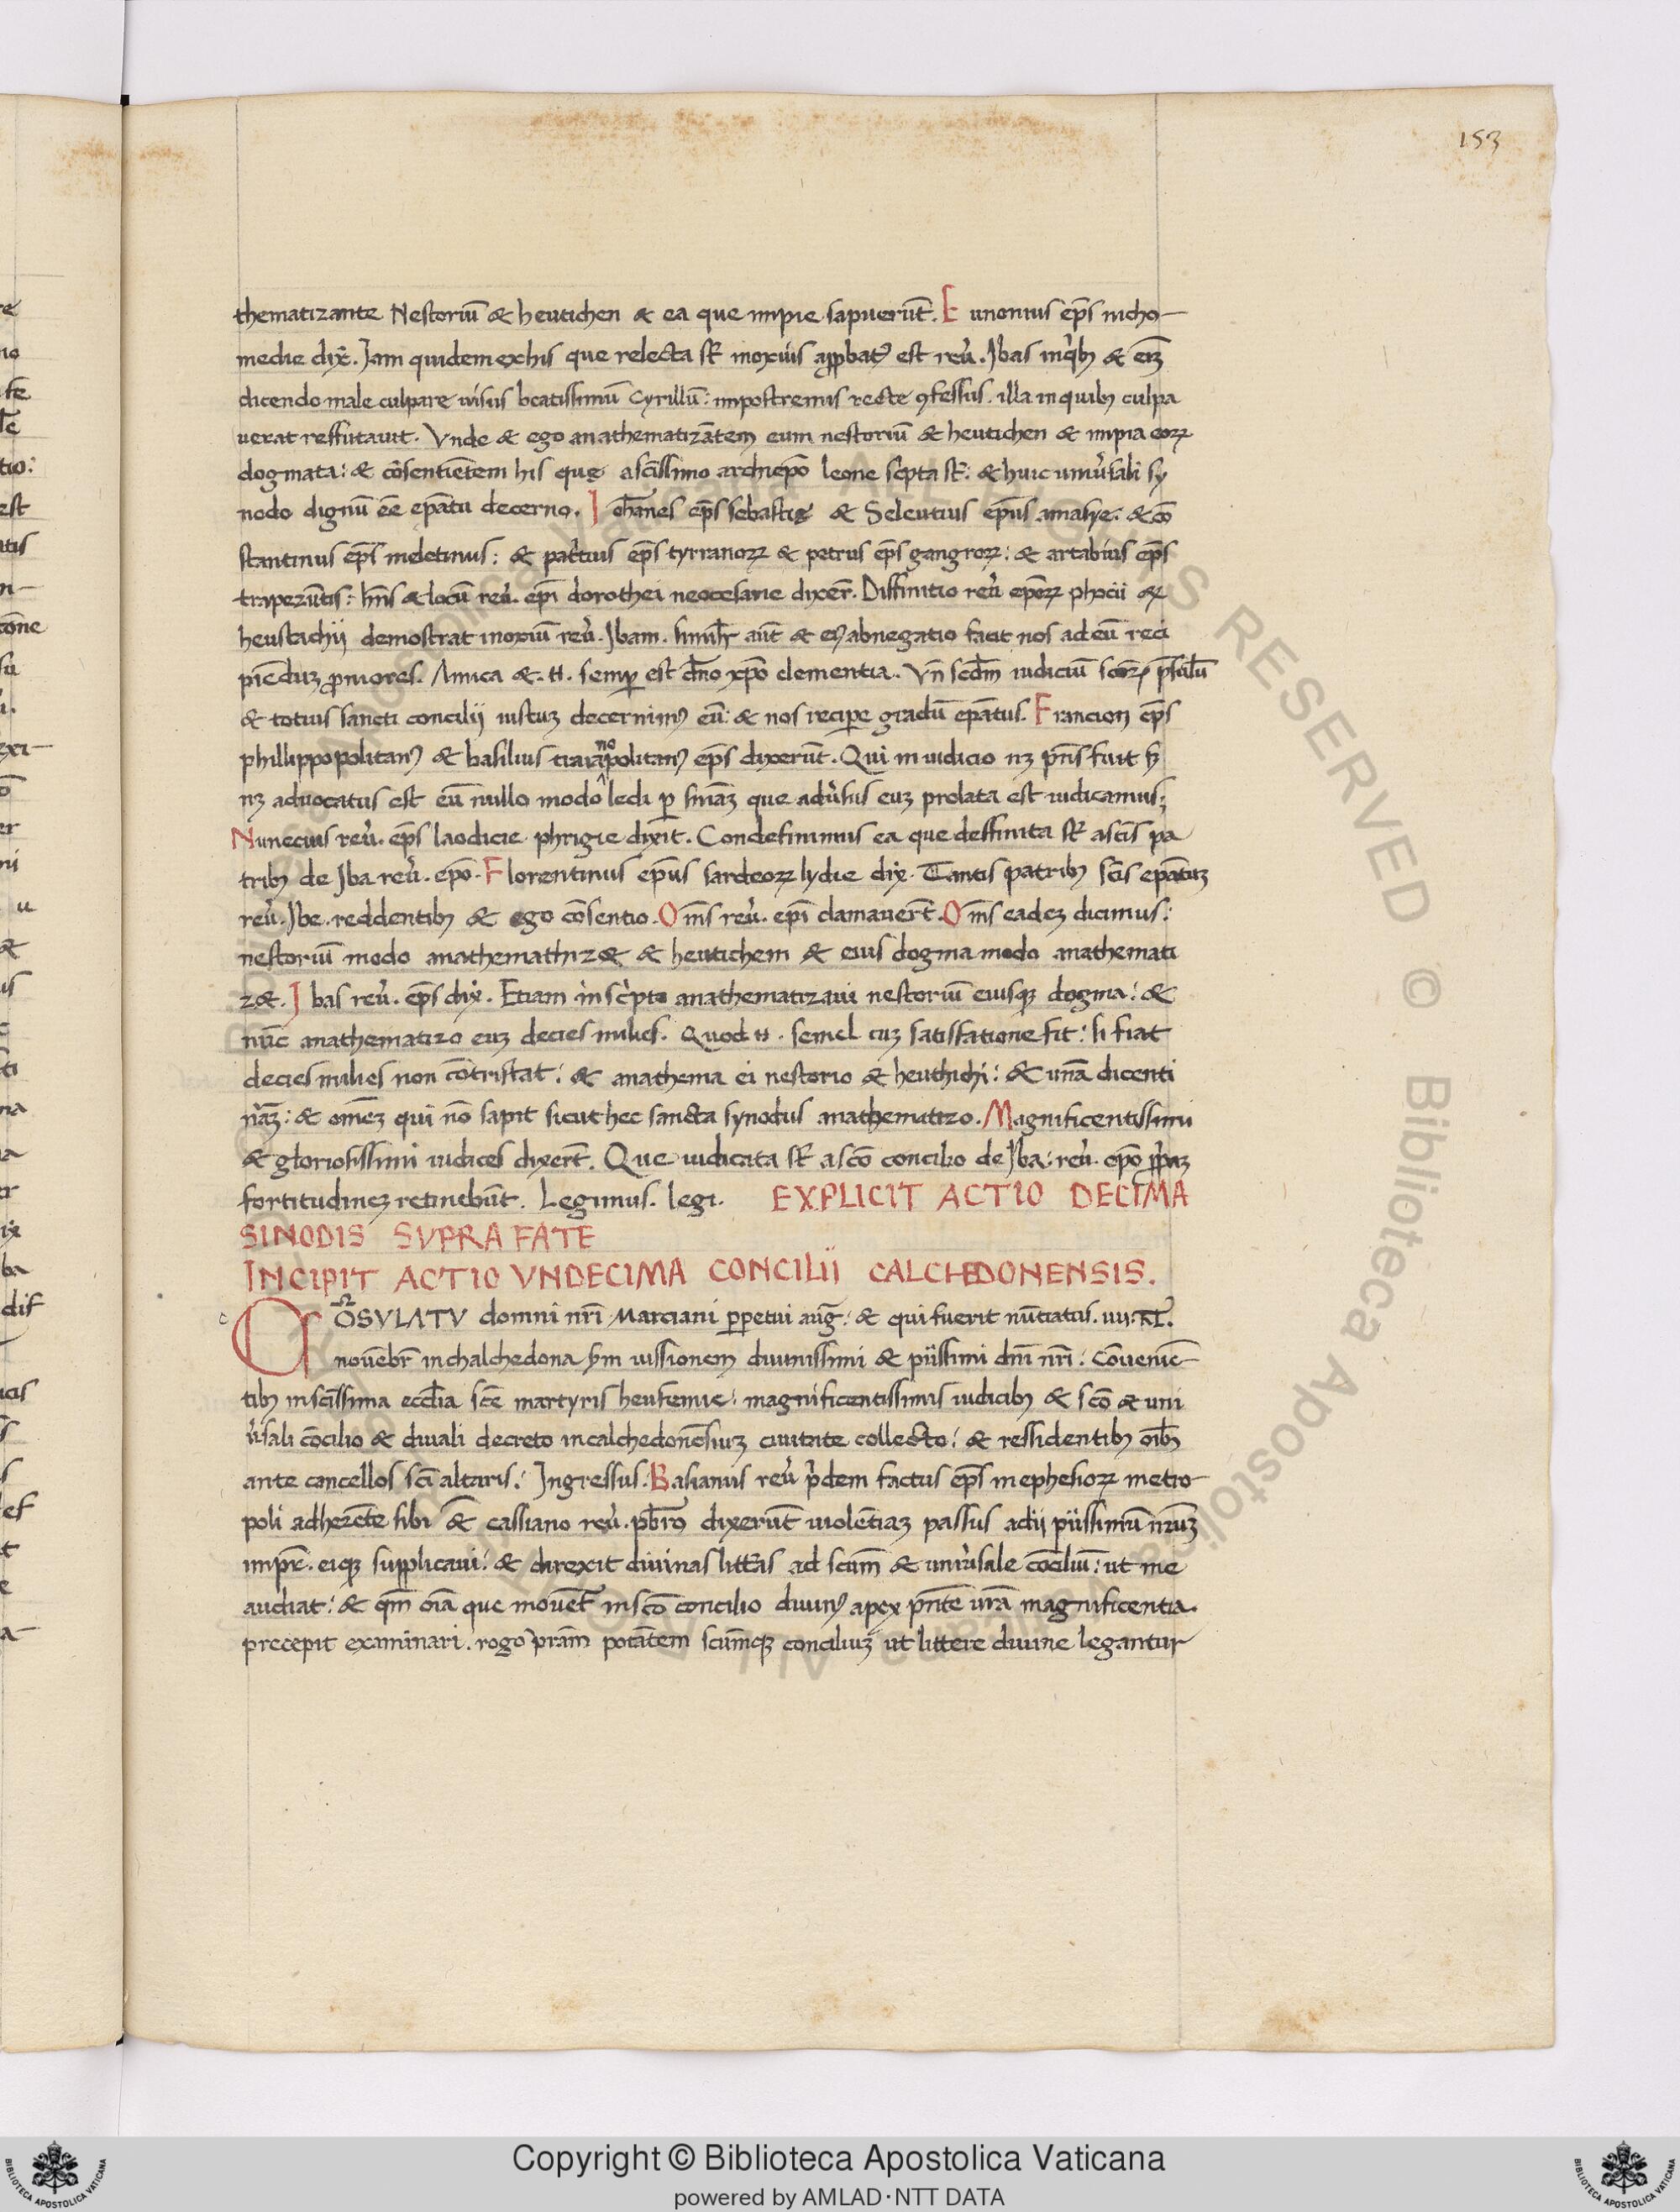 153
thematizante Nestoriū & heutichen & ea que impie sapuerūt. Eunomius ep̄s nicho-
medie dix̄. Jam quidem ex his que relecta st̄ inoxius app̱batꝰ est reū. Jbas in qͥbꝫ & eiꝫ
dicendo male culpare uisus beatissimū Cyrillū: impostremis recte ꝯfessus. illa in quibꝫ culpa
uerat reffutauit. Vnde & ego anathematizātem eum nestoriū & heutichen & impia eoꝝ
dogmata: & cōsentiētem his quę a sc̄issimo archiep̄o leone sc̄pta st̄: & huic uniu̇sali sy
nodo dignū ēē ep̄atu decerno. Joh̄anes ep̄s sebastię & Seleutius ep̄us amasye: & cō
stantinus ep̄s meletinus: & patͥtius ep̄s tyrranoꝝ & petrus ep̄s gangroꝝ: & artabius ep̄s
trapezūtis: hn̄s & locū reu̇. ep̄i dorothei neocesarie dixēr. Diffinitio reu̇ ep̄oꝝ phocii &
heustachij demostrat inoxiū reu̇. Jbam. simil̄r aūt & eiꝰ abnegatio facit nos ad eū reci
piēduꝫ p̱niores. Amica &. N. semp̱ est dn̄o xp̄o clementia. Vn̄ sc̄dm iudiciū sc̄oꝝ p̄sulū
& totius sancti concilij iustuꝫ decernimꝰ eū: & nos recipe gradū ep̄atus. Francion ep̄s
phillippopolitanꝰ & basilius traianopolitanꝰ ep̄s dixerūt. Qui in iudicio nꝫ p̄ns fuit sꝫ
nꝫ advocatus est eū nullo modo ledi p̱ sn̄iaꝫ que adu̇sus euꝫ prolata est iudicamus;
Nunecius reu̇. ep̄s laodicie phrigie dixit. Condefinimus ea que deffinita st̄ a sc̄is pa
tribꝫ de Jba reu̇. ep̄o. Florentinus ep̄us sardeoꝝ lydie dix̄. Tantis patribꝫ sc̄is ep̄atuꝫ
reu̇. Jbe. reddentibꝫ & ego cōsentio. Om̄s reu̇. ep̄i clamauer̄t. Om̄s eadeꝫ dicimus:
nestoriū modo anathemathiz& & heutichem & eius dogma modo anathemati
z&. Jbas reu̇. ep̄s dix̄. Etiam in scͥpto anathematizaui nestoriū eiusqꝫ dogma: &
nūc anathematizo euꝫ decies milies. Quod N. semel cuꝫ satisfatione fit: si fiat
decies milies non cōtristat: & anathema ei nestorio & heuthichi: & unā dicenti
nāꝫ: & om̄eꝫ qui nō sapit sicut hec sancta synodus anathematizo. Magnificentissimi
& gloriosissimi iudices dixer̄t. Que iudicata st̄ a sc̄o concilio de Jba: reu̇. ep̄o p̱p̱aꝫ
fortitudineꝫ retinebūt. Legimus. legi. EXPLICIT ACTIO DECIMA
SINODIS SVPRA FATE
INCIPIT ACTIO VNDECIMA CONCILII CALCHEDONENSIS.
c CŌSVLATV domni nr̄i Marciani p̱petui aug̅: & qui fuerit nūtiatus. uii: kl̄.
nouēbr̄ in chalchedona sm̄ iussionem diuinissimi & piissimi dn̄i nr̄i: Cōueniē-
tibꝫ in sc̄issima eccl̄ia sc̄e martyris heufemie: magnificentissimis iudicibꝫ & sc̄o & uni
u̇sali cōcilio & diuali decreto in calchedonēsiuꝫ ciuitate collecto: & ressidentibꝫ oīb̄
ante cancellos sc̄i altaris: Ingressus: Basianus reu̇ pͥdem factus ep̄s in ephesioꝝ metro-
poli adherēte sibi & cassiano reu̇. pb̄ro dixerūt uiolētiaꝫ passus adij piissimū nr̄uꝫ
imp̱r̄. eiqꝫ supplicaui: & direxit diuinas litt̄as ad sc̄um & uniu̇sale cōciliū: ut me
audiat: & qm̄ oīa que mouēt̄ in sc̄o concilio diuinꝰ apex p̄nte ur̄a magnificentia.
precepit examinari. rogo ur̄am potātem sc̄umqꝫ conciliuꝫ ut littere diuine legantur
Copyright © Biblioteca Apostolica Vaticana
powered by AMLAD·NTT DATA